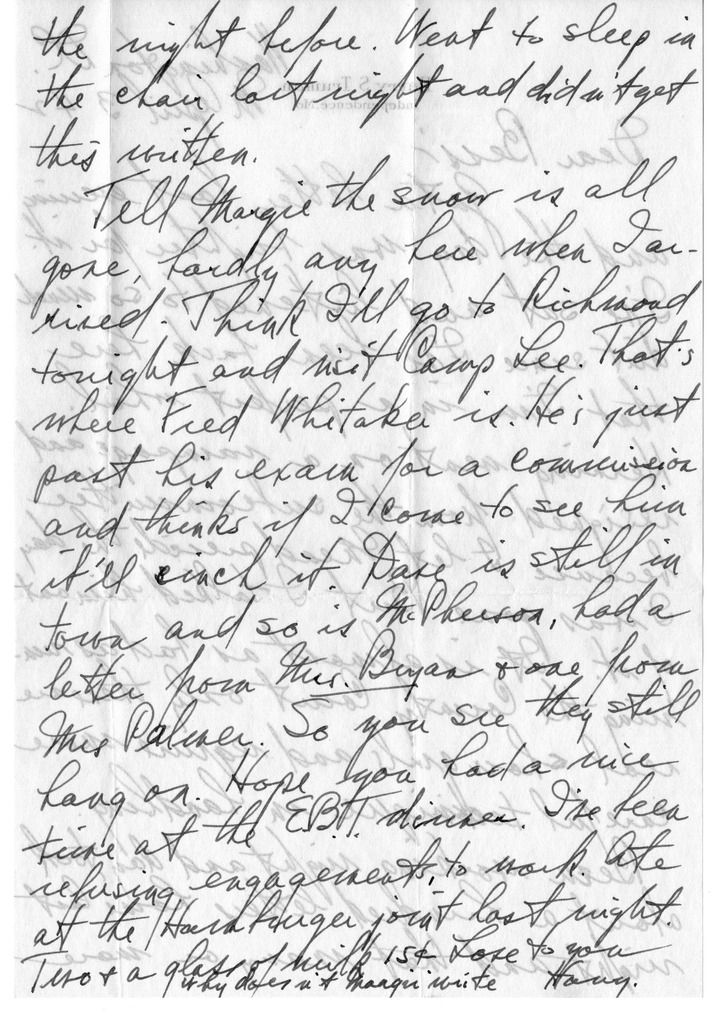 the night before. Went to sleep in
the chair last night and didn't get
this written.
Tell Margie the snow is all
gone, hardly any here when I ar-
rived. Think I'll go to Richmond
tonight and visit Camp Lee. That's
where Fred Whitaker is. He's just
past his exam for a commission
and thinks if I come to see him
it'll cinch it. Dave is still in
town and so is McPherson, had a
letter from Mrs. Bryan & one from
Mrs Palmer. So you see they still
hang on. Hope you had a nice
time at the E.B.T. dinner. I've been
refusing engagements, to work. Ate
at the Hamburger joint last night.
Two & a glass of milk 15¢ Love to you
why doesn't Margie write Harry.